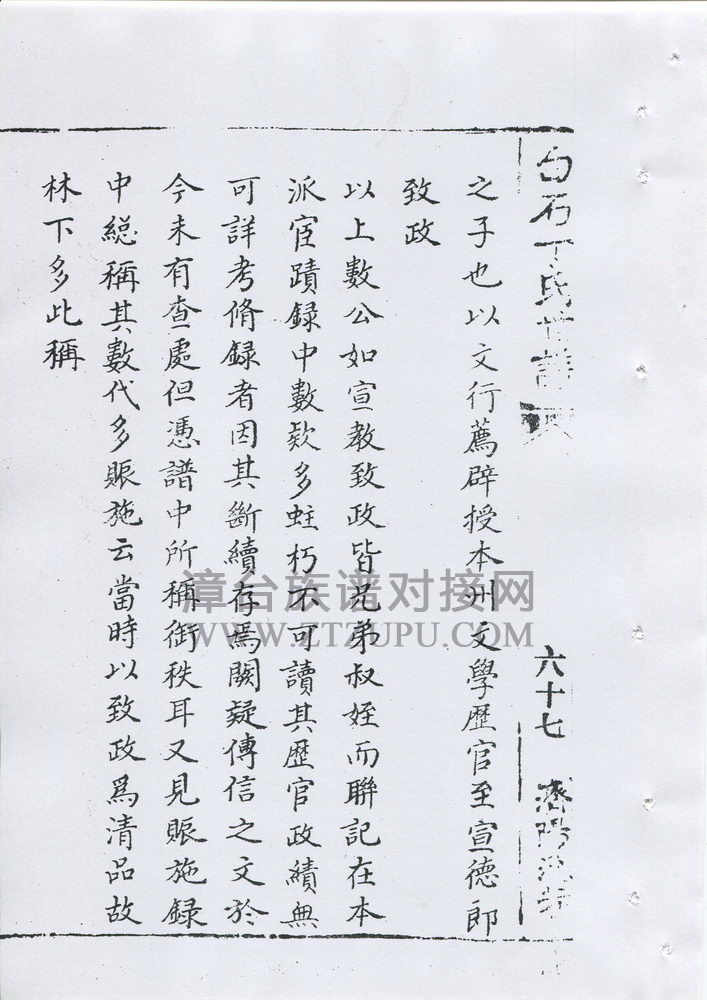 白石丁氏古譜
六十七
濟陽
之子也以文行薦辟授本州文學歷官至宣德郎
致政
以上數公如宣教致政皆兄弟叔姪而聯記在本
派宦蹟錄中數欵多蛀朽不可讀其歷官政績無
可詳考脩録者因其斷續存焉闕疑傳信之文於
今未有查處但憑譜中所稱銜秩耳又見賑施録
中緫稱其數代多賑施云當時以致政爲清品故
林下多此稱
漳台族谱对接网
WWW.ZTZUPU.COM